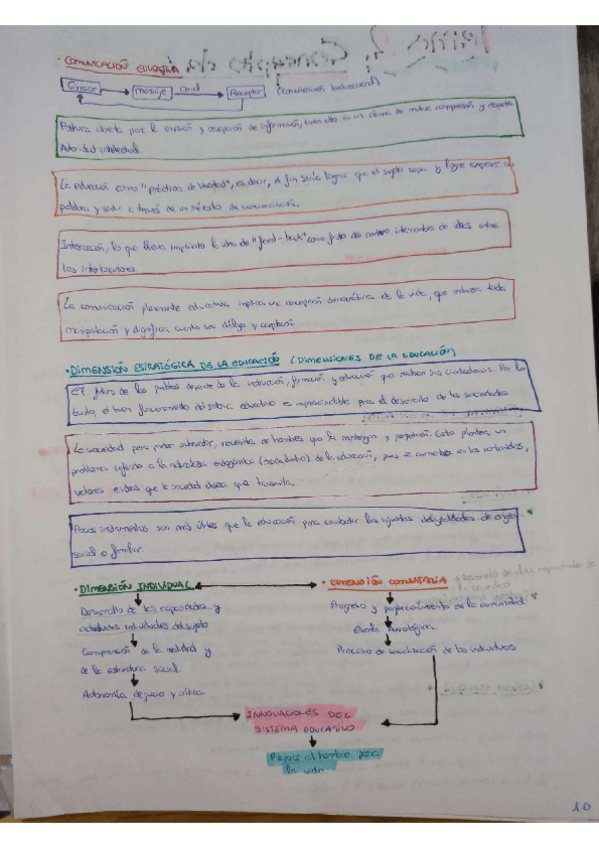 · COMUNICACIÓN EDUCATIVA
Emisor → mensaje canal → Receptor (comunicación bidireccional)
Postura abierta para la emisión y recepción de información, todo ello en un clima de mutua comprensión y respeto
Autoridad intelectual.
La educación como "práctica de libertad", es decir, el fin sería lograr que el sujeto sepa y logre expresar su
palabra y sentir a través de un método de concienciación.
Interacción, lo que lleva implícito la idea de "feed-back" como fruto del mutuo intercambio de ideas entre
los interlocutores.
La comunicación plenamente educativa implica una concepción democrática de la vida, que rechaza toda
manipulación y dignifica cuanto sea diálogo y aceptación.
· DIMENSIÓN ESTRATÉGICA DE LA EDUCACIÓN (DIMENSIONES DE LA EDUCACIÓN)
El futuro de los pueblos depende de la instrucción, formación y educación que reciben sus ciudadanos. Por lo
tanto, el buen funcionamiento del sistema educativo es imprescindible para el desarrollo de las sociedades
La sociedad para poder subsistir, necesita de hombres que la mantengan y perpetúen. Esto plantea un
problema referido a la naturaleza de la educación, pues se concreta en los contenidos,
valores e ideas que la sociedad desea que transmita.
Pocos instrumentos son más útiles que la educación para combatir las injustas desigualdades de origen
social o familiar.
· DIMENSIÓN INDIVIDUAL
· DIMENSIÓN COMUNITARIA
Desarrollo de las capacidades y
aptitudes individuales del sujeto
Comprensión de la realidad y
de la estructura social
Autonomía de juicio y crítica
Progreso y perfeccionamiento de la comunidad
Escala Axiológica
Proceso de socialización de los individuos
INNOVACIONES DEL
SISTEMA EDUCATIVO
Prepara al hombre para
la vida
10